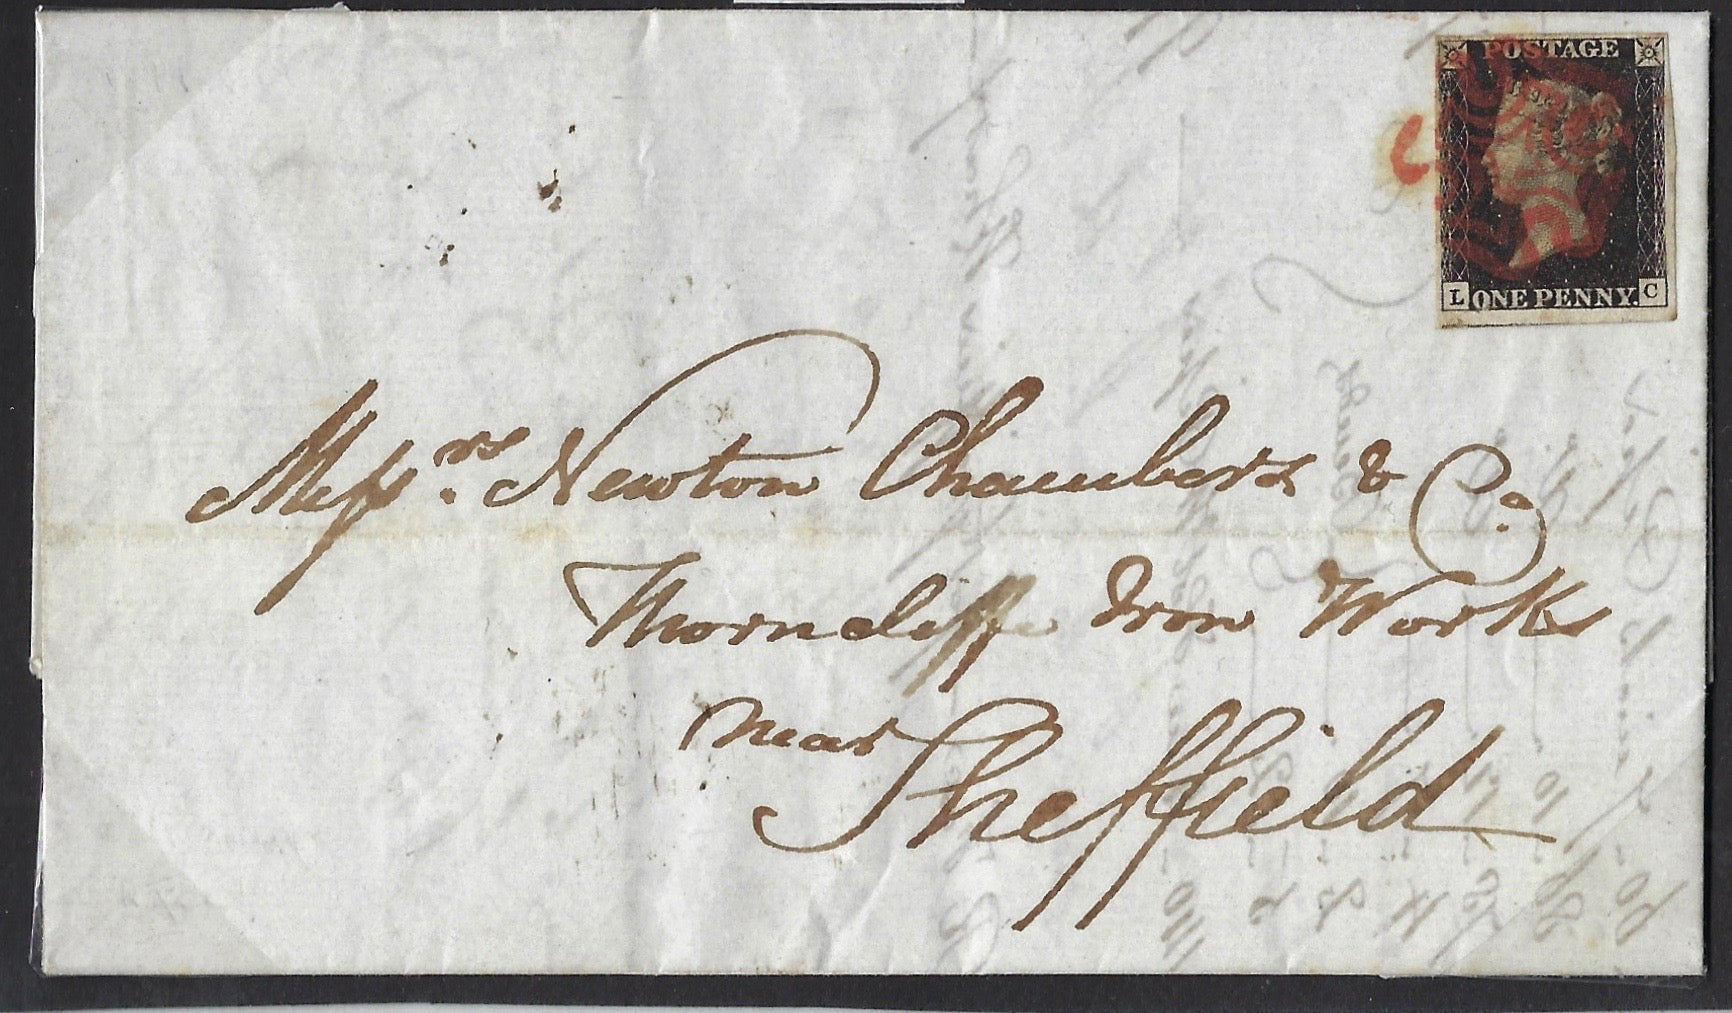 POSTAGE
L ONE PENNY. C
Messrs. Newton Chambers & Co.
Thorncliffe Iron Works
near Sheffield